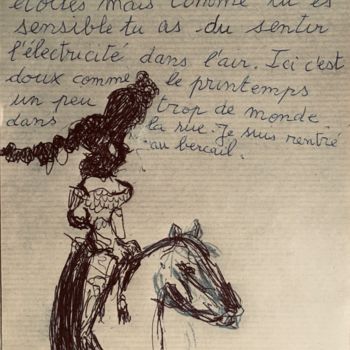 étoiles mais comme tu es
sensible tu as du sentir
l'électricité dans l'air. Ici c'est
doux comme le printemps
un peu trop de monde
dans la rue. Je suis rentré
au bercail.